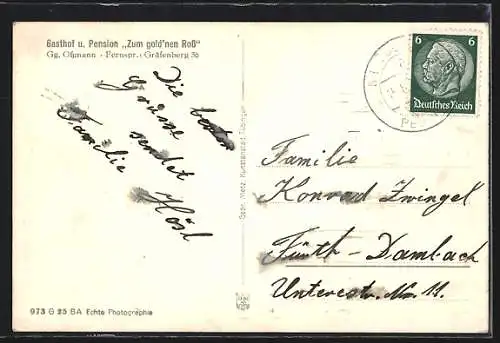 Gasthof u. Pension „Zum gold'nen Roß"
Gg. Oßmann - Fernspr.: Gräfenberg 36
Die besten
Grüsse
sendet
Familie Hösl
Gebr. Metz, Kunstanstalt Tübingen
6 6
Deutsches Reich
Familie
Konrad Zwingel
Fürth - Dambach
Unterestr. Nr. 11.
973 G 25 BA Echte Photographie